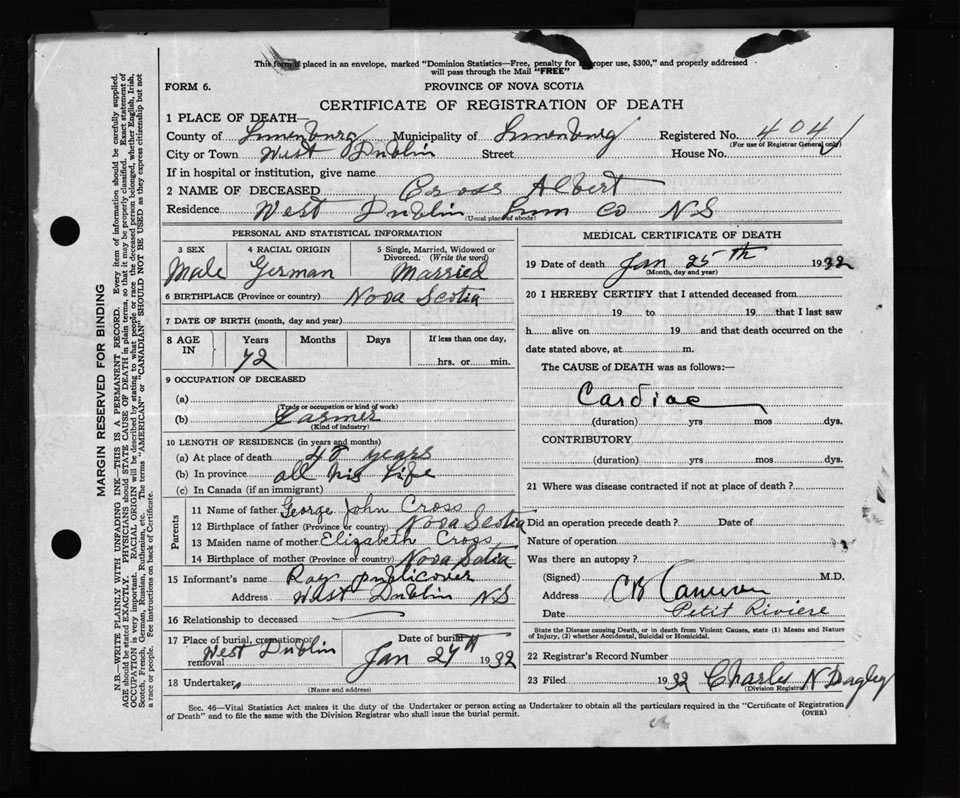 This form if placed in an envelope, marked "Dominion Statistics—Free, penalty for improper use, $300," and properly addressed
will pass through the Mail "FREE"
FORM 6. PROVINCE OF NOVA SCOTIA
CERTIFICATE OF REGISTRATION OF DEATH
1 PLACE OF DEATH—
County of Lunenburg Municipality of Lunenburg Registered No. 404
(For use of Registrar General only)
City or Town West Dublin Street House No.
If in hospital or institution, give name
2 NAME OF DECEASED Cross Albert
Residence West Dublin Lun Co NS
(Usual place of abode)
PERSONAL AND STATISTICAL INFORMATION
3 SEX 4 RACIAL ORIGIN 5 Single, Married, Widowed or
Divorced. (Write the word)
Male German Married
6 BIRTHPLACE (Province or country) Nova Scotia
7 DATE OF BIRTH (month, day and year)
8 AGE IN Years Months Days If less than one day,
72 hrs. or min.
9 OCCUPATION OF DECEASED
(a)
(Trade or occupation or kind of work)
(b) Farmer
(Kind of industry)
10 LENGTH OF RESIDENCE (in years and months)
(a) At place of death years
(b) In province all his life
(c) In Canada (if an immigrant)
Parents
11 Name of father George John Cross
12 Birthplace of father (Province or country) Nova Scotia
13 Maiden name of mother Elizabeth Cross
14 Birthplace of mother (Province or country) Nova Scotia
15 Informant's name Ray Publicover
Address West Dublin NS
16 Relationship to deceased
17 Place of burial, cremation or removal West Dublin Date of burial Jan 27th 1932
18 Undertaker,
(Name and address)
MEDICAL CERTIFICATE OF DEATH
19 Date of death Jan 25th 1932
(Month, day and year)
20 I HEREBY CERTIFY that I attended deceased from
19 to 19 that I last saw
h alive on 19 and that death occurred on the
date stated above, at m.
The CAUSE of DEATH was as follows:—
Cardiac
(duration) yrs mos dys.
CONTRIBUTORY
(duration) yrs mos dys.
21 Where was disease contracted if not at place of death?
Did an operation precede death? Date of
Nature of operation
Was there an autopsy?
(Signed) M.D.
Address Cameron
Date Petit Riviere
State the Disease causing Death, or in death from Violent Causes, state (1) Means and Nature
of Injury, (2) whether Accidental, Suicidal or Homicidal.
22 Registrar's Record Number
23 Filed 1932 Charles N Dagley
(Division Registrar)
Sec. 46—Vital Statistics Act makes it the duty of the Undertaker or person acting as Undertaker to obtain all the particulars required in the "Certificate of Registration
of Death" and to file the same with the Division Registrar who shall issue the burial permit. (OVER)
MARGIN RESERVED FOR BINDING
N.B.—WRITE PLAINLY WITH UNFADING INK—THIS IS A PERMANENT RECORD. Every item of information should be carefully supplied.
AGE should be stated EXACTLY. PHYSICIANS should STATE CAUSE OF DEATH in plain terms, so that it may be properly classified. Exact statement of
OCCUPATION is very important. RACIAL ORIGIN will be described by stating to what people or race the deceased person belonged, whether English, Irish,
Scotch, French, German, Russian, Ruthenian, etc. The terms "AMERICAN" or "CANADIAN" SHOULD NOT BE USED as they express citizenship but not
a race or people. See instructions on back of Certificate.